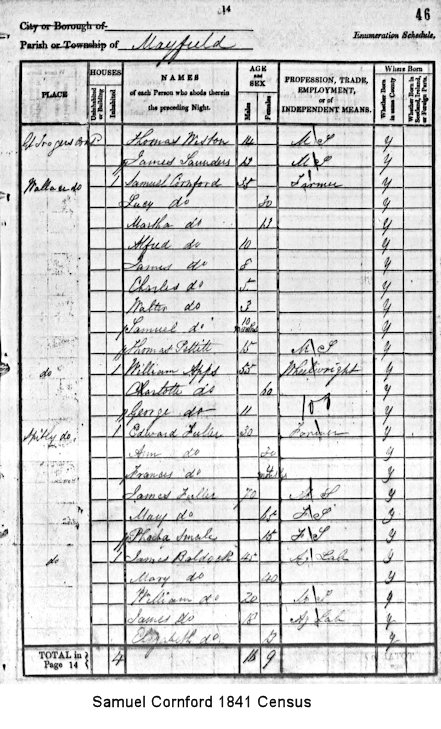 14
46
City or Borough of
Parish or Township of Mayfield
Enumeration Schedule.
PLACE
HOUSES
Uninhabited or Building
Inhabited
NAMES
of each Person who abode therein the preceding Night.
AGE and SEX
Males
Females
PROFESSION, TRADE, EMPLOYMENT, or of INDEPENDENT MEANS.
Where Born
Whether Born in same County
Whether Born in Scotland, Ireland, or Foreign Parts.
Thomas Weston 14 M S y
James Saunders 13 M S y
Wallace do 1 Samuel Cornford 35 Farmer y
Lucy do 30 y
Martha do 13 y
Alfred do 10 y
James do 8 y
Charles do 5 y
Walter do 3 y
Samuel do 10 months y
Thomas Pettitt 15 M S y
do 1 William Apps 55 Wheelwright y
Charlotte do 60 y
George do 11 y
100
do 1 Edward Fuller 30 Farmer y
Ann do y
Frances do y
James Fuller 70 y
May do 15 F S y
Phoeba Smale 15 F S y
do 1 James Baldock 45 Ag Lab y
Mary do 40 y
William do 20 y
James do Ag Lab y
Elizabeth do y
TOTAL in Page 14 4 16 9
Samuel Cornford 1841 Census